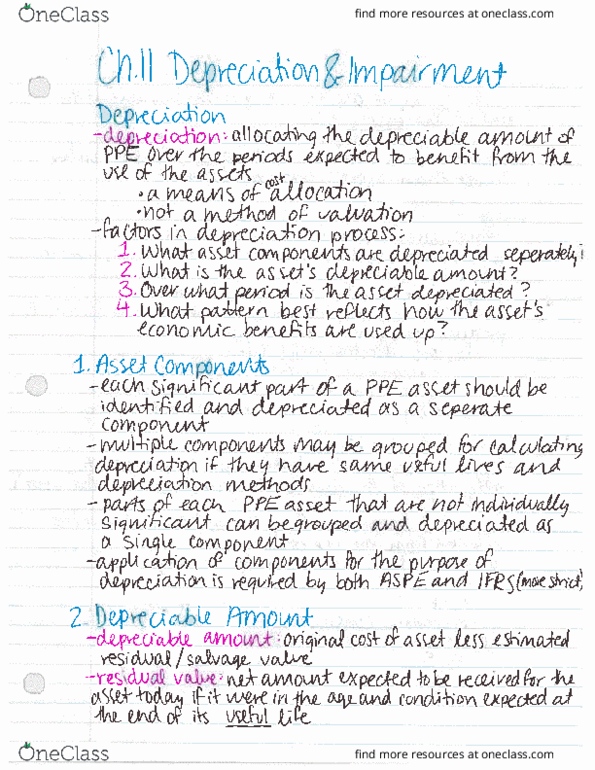 OneClass
find more resources at oneclass.com
Ch.11 Depreciation & Impairment
Depreciation
-depreciation: allocating the depreciable amount of
PPE over the periods expected to benefit from the
use of the assets
•a means of cost allocation
•not a method of valuation
-factors in depreciation process:
1. What asset components are depreciated seperately?
2. What is the asset's depreciable amount?
3. Over what period is the asset depreciated?
4. What pattern best reflects how the asset's
economic benefits are used up?
1. Asset Components
-each significant part of a PPE asset should be
identified and depreciated as a seperate
component
-multiple components may be grouped for calculating
depreciation if they have same useful lives and
depreciation methods
-parts of each PPE asset that are not individually
significant can be grouped and depreciated as
a single component
-application of components for the purpose of
depreciation is required by both ASPE and IFRS (more strict)
2. Depreciable Amount
-depreciable amount: original cost of asset less estimated
residual/salvage value
-residual value: net amount expected to be received for the
asset today if it were in the age and condition expected at
the end of its useful life
OneClass
find more resources at oneclass.com